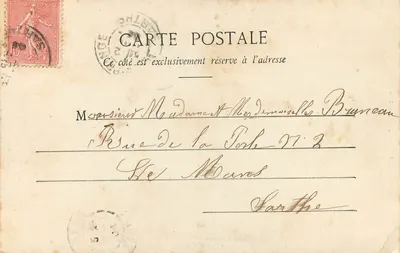 CARTE POSTALE
Ce côté est exclusivement réservé à l'adresse
Monsieur Madame et Mesdemoiselles Bruneau
Rue de la Porte N: 2
Le Mans
Sarthe